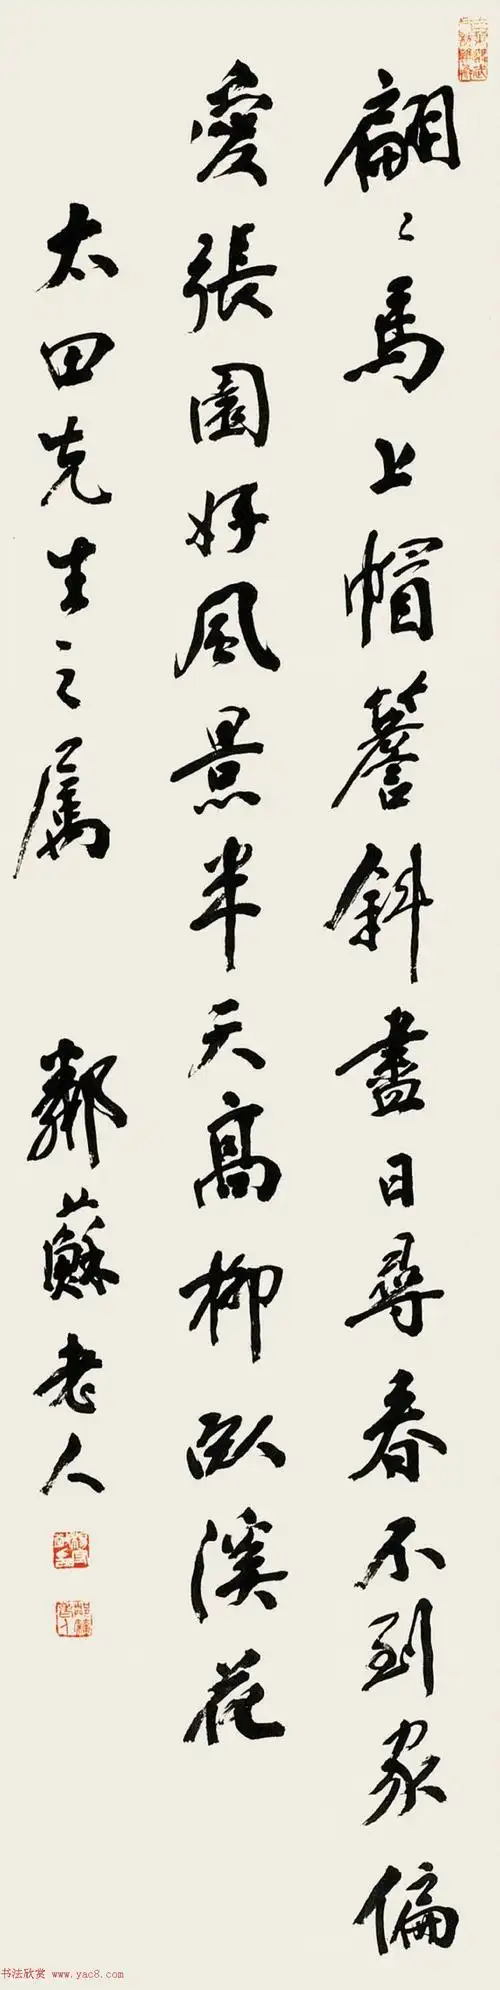 翩〻馬上帽簷斜盡日尋春不到家偏
愛張園好風景半天高柳臥溪花
太田先生之属 鄰蘇老人
书法欣赏 www.yac8.com